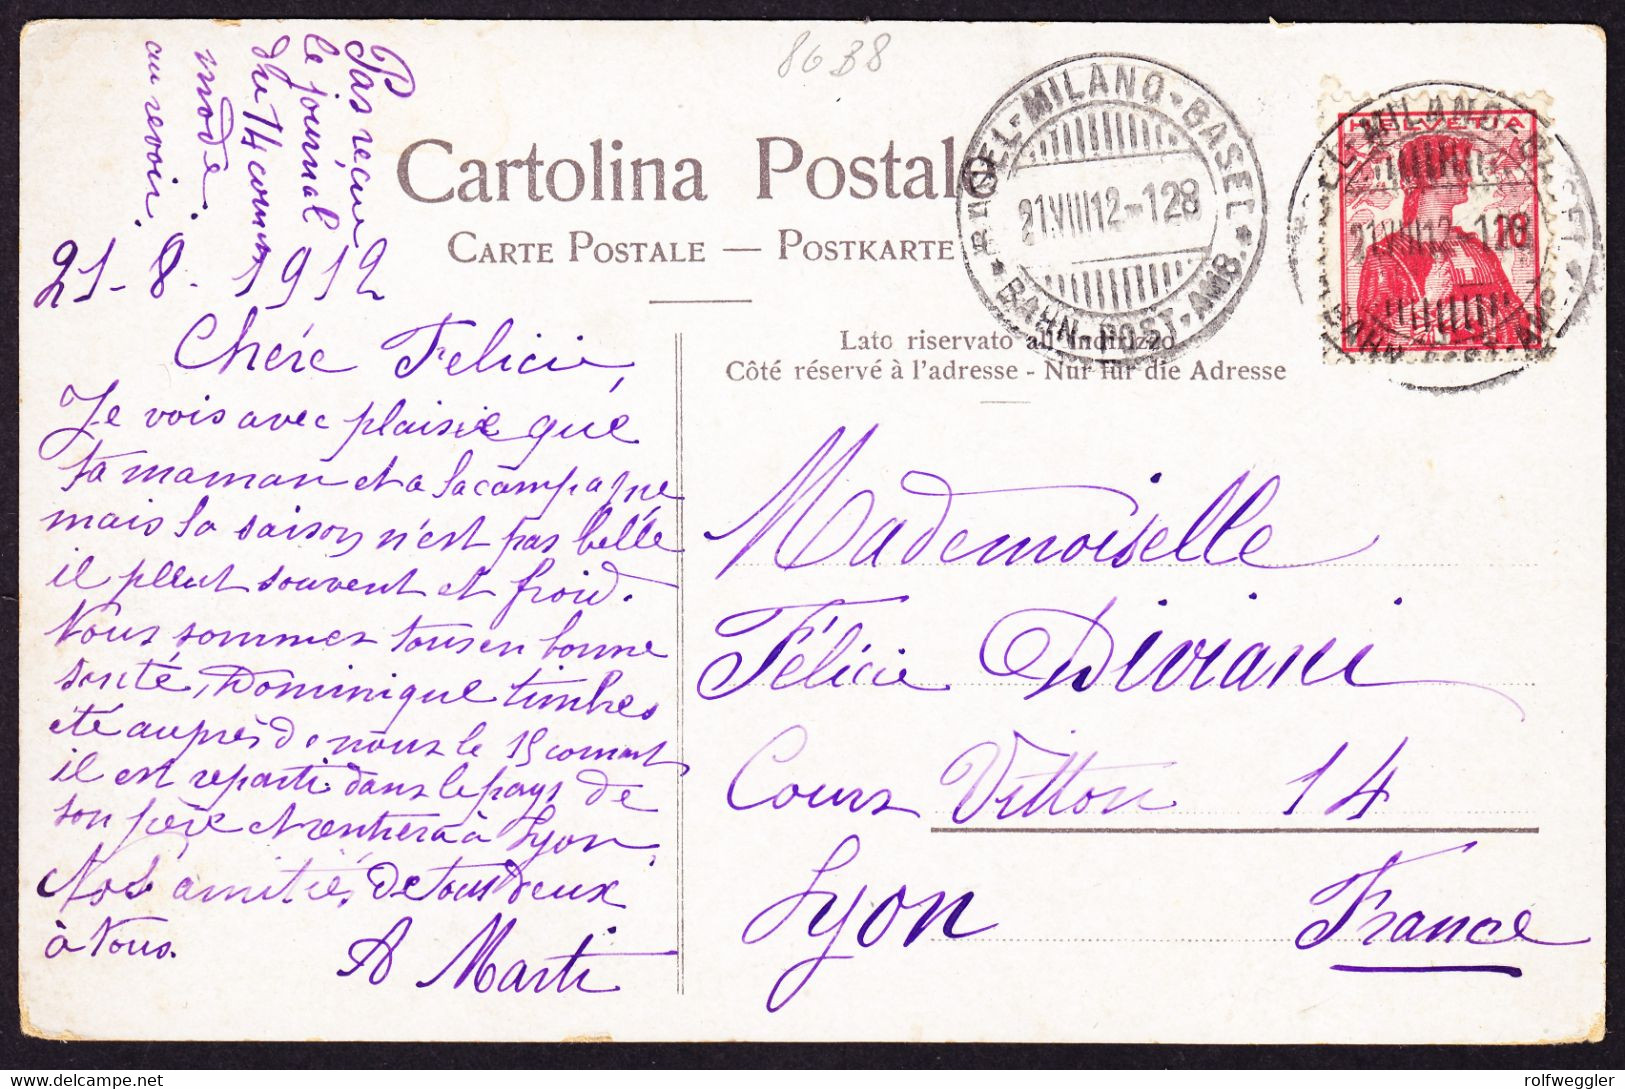 8638
Pas reçu
le journal
du 14 comm
mode.
au revoir.
Cartolina Postale
CARTE POSTALE — POSTKARTE
BASEL-MILANO-BASEL
21.VIII12-128
BAHN-POST-AMB.
HELVETIA
Lato riservato all'indirizzo
Côté réservé à l'adresse - Nur für die Adresse
21-8. 1912
Chére Felicie,
Je vois avec plaisir que
ta maman et a la campagne
mais la saison n'est pas belle
il pleut souvent et froid.
Nous sommes tous en bonne
santé, Dominique
été auprès de nous le 15 comant
il est reparti dans le pays de
son père et rentrera à Lyon,
Nos amitiés de tous deux
à Vous.
A Marti
Mademoiselle
Félicie Diviani
Cours Vitton 14
Lyon France
rolfweggler